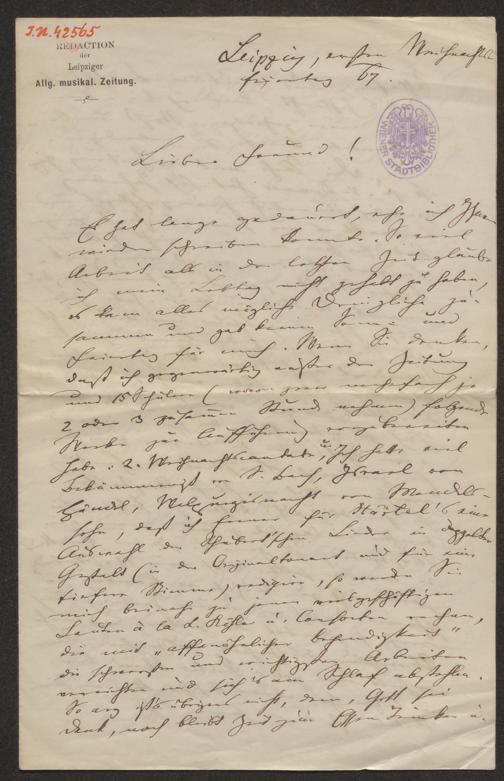 J.N. 42565
REDACTION
der
Leipziger
Allg. musikal. Zeitung.
Leipzig, ersten Weihnachts
feiertag 67.
WIENER STADTBIBLIOTHEK
Lieber Freund!
Es hat lange gedauert, ehe ich Ihnen
wieder schreiben konnte. So viel
Arbeit als in der letzten Zeit glaube
ich mein Lebtag nicht gehabt zu haben,
es kam alles mögliche Dringliche zu-
sammen und gab keinen Sonn- und
Feiertag für mich. Wenn Sie denken,
daß ich gegenwärtig außer der Zeitung
und 15 Schüler (wovon
2 oder 3 zusammen Stund nehmen) folgende
Werke zur Aufführung vorzubereiten
habe: 2. Weihnachtscantate, u. Ich hatte viel
Bekümmerniß von S. Bach, Israel von
Händel, Walpurgisnacht von Mendels-
sohn, daß ich ferner für Härtel's eine
Auswahl der Schubert'schen Lieder in doppelter
Gestalt (in der Originaltonart und für eine
tiefere Stimme) redigire, so werden Sie
mich beinahe zu jenen vielgeschäftigen
Leuten à la L. Köhler u. Consorten rechnen,
die mit „affenähnlicher Behendigkeit"
die schwersten und wichtigsten Arbeiten
verrichten und sich's am Schlaf abstehlen.
So arg ist's übrigens nicht, denn, Gott sei
Dank, noch bleibt Zeit zum Essen Trinken u.